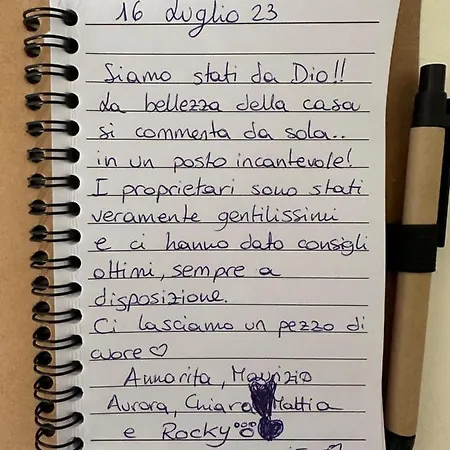 16 Luglio 23
Siamo stati da Dio!!
La bellezza della casa
si commenta da sola..
in un posto incantevole!
I proprietari sono stati
veramente gentilissimi
e ci hanno dato consigli
ottimi, sempre a
disposizione.
Ci lasciamo un pezzo di
cuore ♡
Annarita, Maurizio
Aurora, Chiara, Mattia
e Rocky